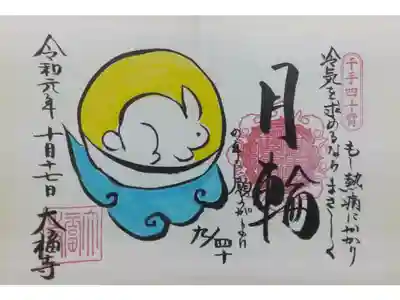 千手四十臂
もし熱病にかかり
冷気を求めるならまさしく
月輪
の真言願うがよい
九／四十
令和元年十月十七日
大福寺